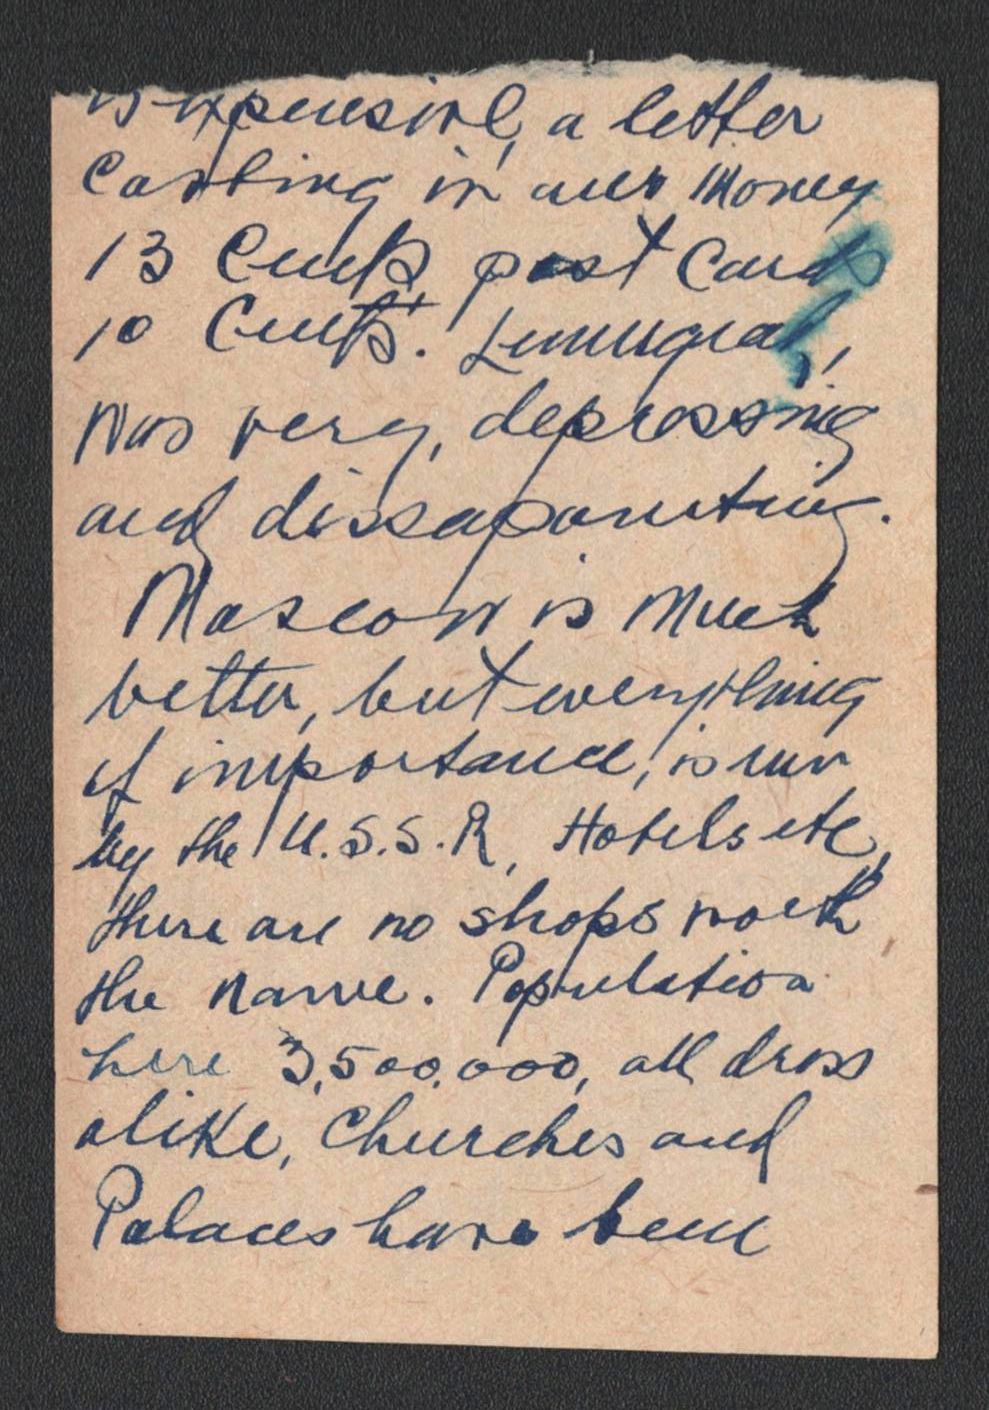 is expensive, a letter
Costing in our Money
13 Cents, post Cards
10 Cents. Leningrad,
was very, depressing
and dissapointing.
Moscow is Much
better, but everything
of importance, is run
by the U.S.S.R, Hotels etc,
there are no shops worth
the name. Population
here 3,500,000, all dress
alike, Churches and
Palaces have been